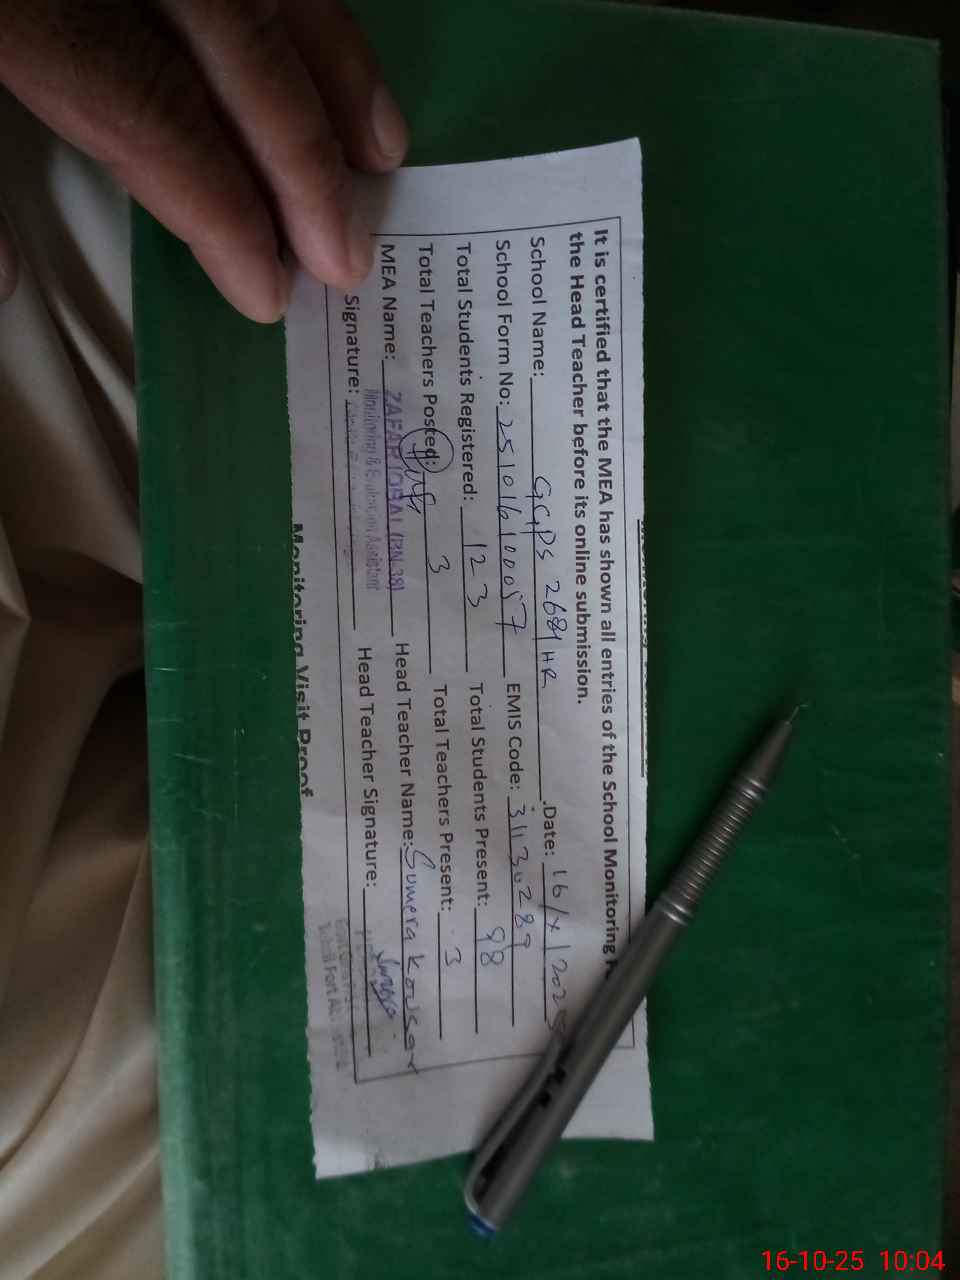 It is certified that the MEA has shown all entries of the School Monitoring
the Head Teacher before its online submission.
School Name: GGPS 268/HR Date: 16/x/202
School Form No: 25101610057 EMIS Code: 31130289
Total Students Registered: 123 Total Students Present: 98
Total Teachers Posted: 3 Total Teachers Present: 3
MEA Name: ZAFAR IQBAL (BN-38) Head Teacher Name: Sumera Kousar
Monitoring & Evaluation Assistant
Signature: Head Teacher Signature:
Tehsil Fort
Monitoring Visit Proof
16-10-25 10:04